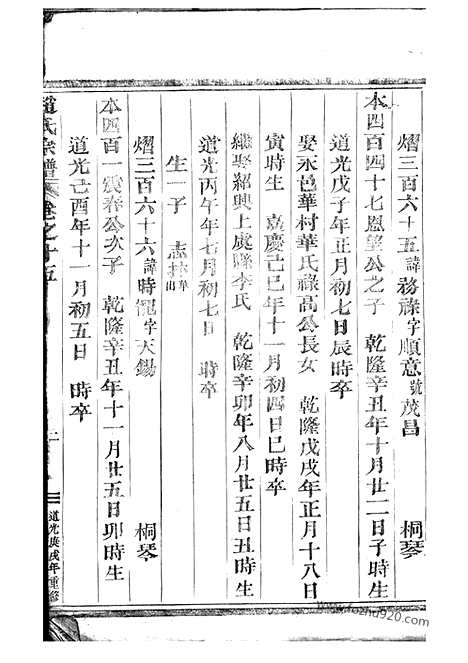 熠三百六十五諱務祿字順意號茂昌 桐琴
本四百四十七恩望公之子 乾隆辛丑年十月廿二日子時生
道光戊子年正月初七日辰時卒
娶永邑華村華氏祿高公長女 乾隆戊戌年正月十八日
寅時生 嘉慶己巳年十一月初四日巳時卒
繼娶紹興上虞縣李氏 乾隆辛卯年八月廿五日丑時生
道光丙午年七月初七日 時卒
生一子 志 華出
熠三百六十六諱時 字天錫 桐琴
本四百一震春公次子 乾隆辛丑年十一月廿五日卯時生
道光己酉年十一月初五日 時卒
趙氏宗譜 卷之十五 道光庚戌年重修
www.fozhu920.com